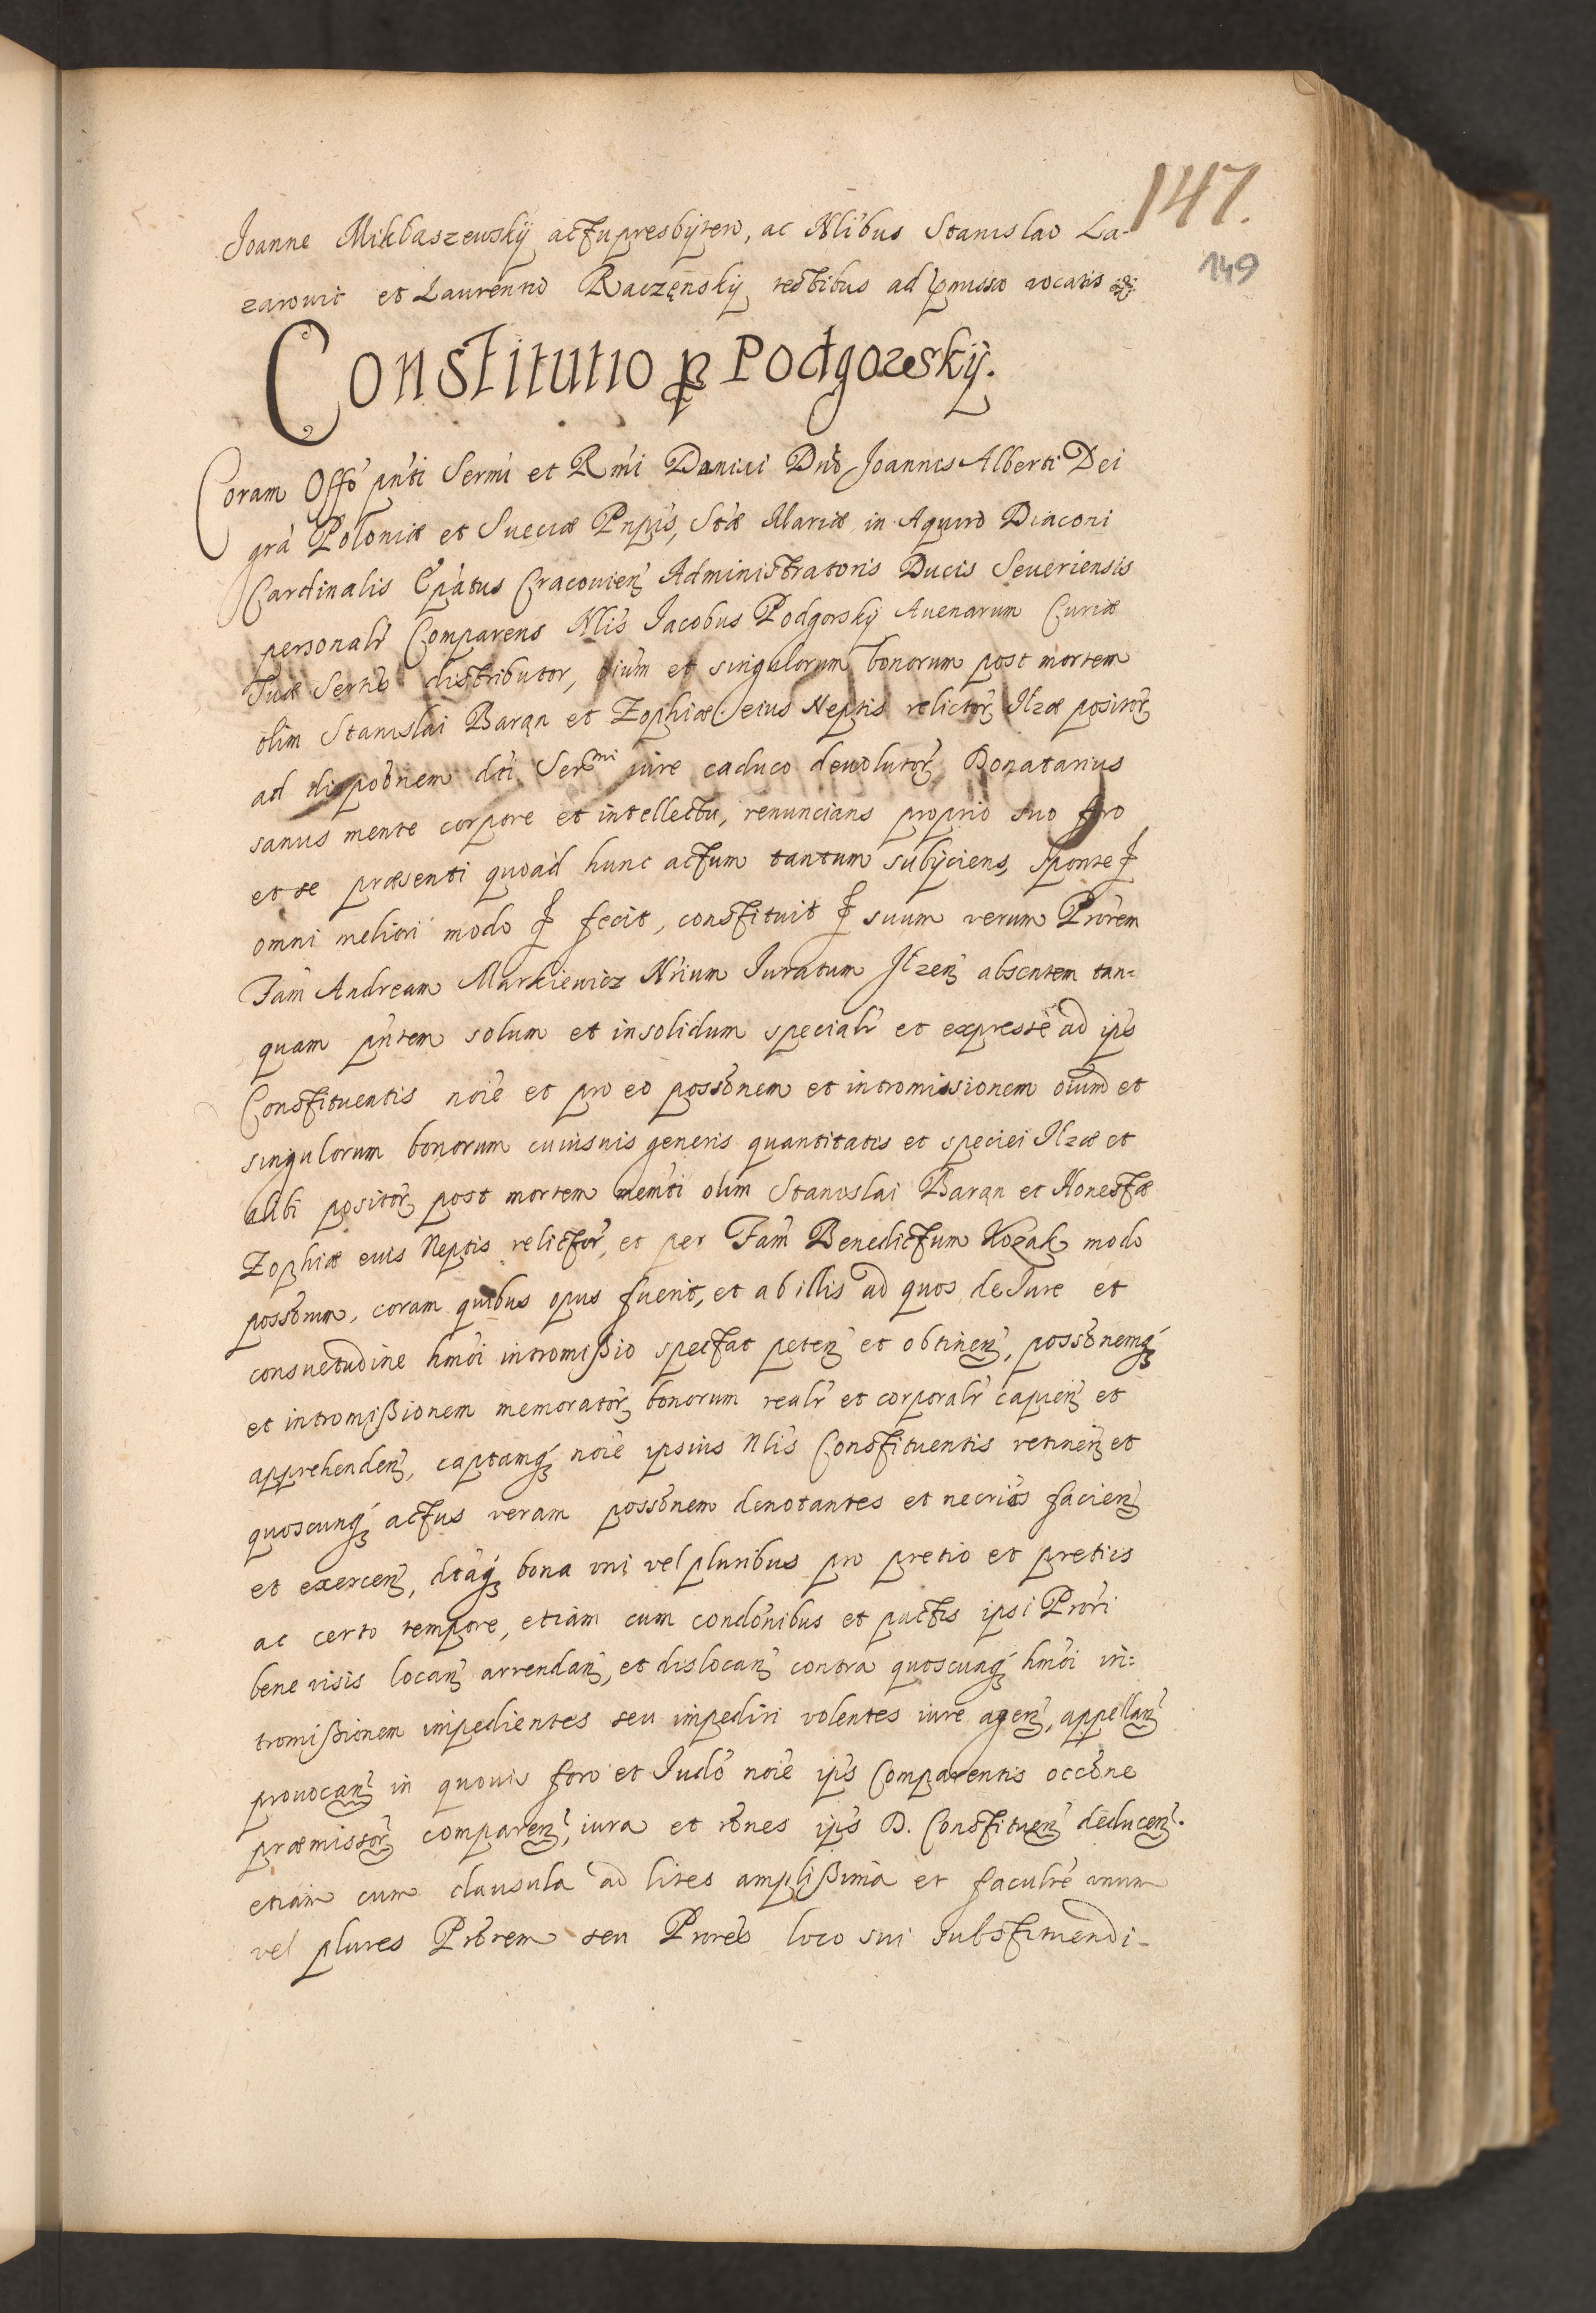 147.
149
Joanne Mikłaszewskÿ actu presbÿtero, ac Nlibus Stanislao La-
zarowic et Laurentio Raczęnskÿ testibus ad pmissa vocatis
Constitutio p Podgorskÿ.
Coram Offo pnti Sermi et Rmi Domini Dni Joannis Alberti Dei
gra Poloniæ et Sueciæ Pnpis, Stæ Mariæ in Aquiro Diaconi
Cardinalis Epatus Cracovien Administratoris Ducis Severiensis
personalr Comparens Nlis Jacobus Podgorskÿ Avenarum Curiæ
Suæ Sertis distributor, oium et singulorum bonorum post mortem
olim Stanislai Barąn et Zophiæ eius Neptis relictor Ilzæ positor
ad dispobnem dti Sermi iure caduco devolutor Donatarius
sanus mente corpore et intellectu, renuncians proprio suo foro
et se præsenti quoad hunc actum tantum subÿciens, sponte &
omni meliori modo & fecit, constituit & suum verum Prorem
Fam Andream Markiewicz Nrium Iuratum Ilzen absentem tan=
quam pntem solum et insolidum specialr et expresse ad ips
Constituentis noie et pro eo possonem et intromissionem oium et
singulorum bonorum cuiusvis generis quantitatis et speciei Ilzæ et
alibi positor post mortem memti olim Stanislai Barąn et Honestæ
Zophiæ eius Neptis relictor, et per Fam Benedictum Kozak modo
possorum, coram quibus opus fuerit, et ab illis ad quos de Iure et
consuetudine hmoi intromißio spectat peten et obtinen, possonemq
et intromißionem memorator bonorum realr et corporalr capien et
apprehenden, captamq noie ipsius Nlis Constituentis retinen et
quoscunq actus veram possonem denotantes et necrios facien
et exercen, dtaq bona uni vel pluribus pro pretio et pretiis
ac certo tempore, etiam cum condonibus et pactis ipsi Prori
bene visis locan arrendan, et dislocan contra quoscunq hmoi in=
tromißionem impedientes seu impediri volentes iure agen, appellan
provocan in quovis foro et Iudo noie ips Comparentis occone
præmissor comparen, iura et rones ips D. Constituen deducen.
etiam cum clausula ad lites amplißima et facultẽ unum
vel plures Prorem seu Prores loco sui substituendi-